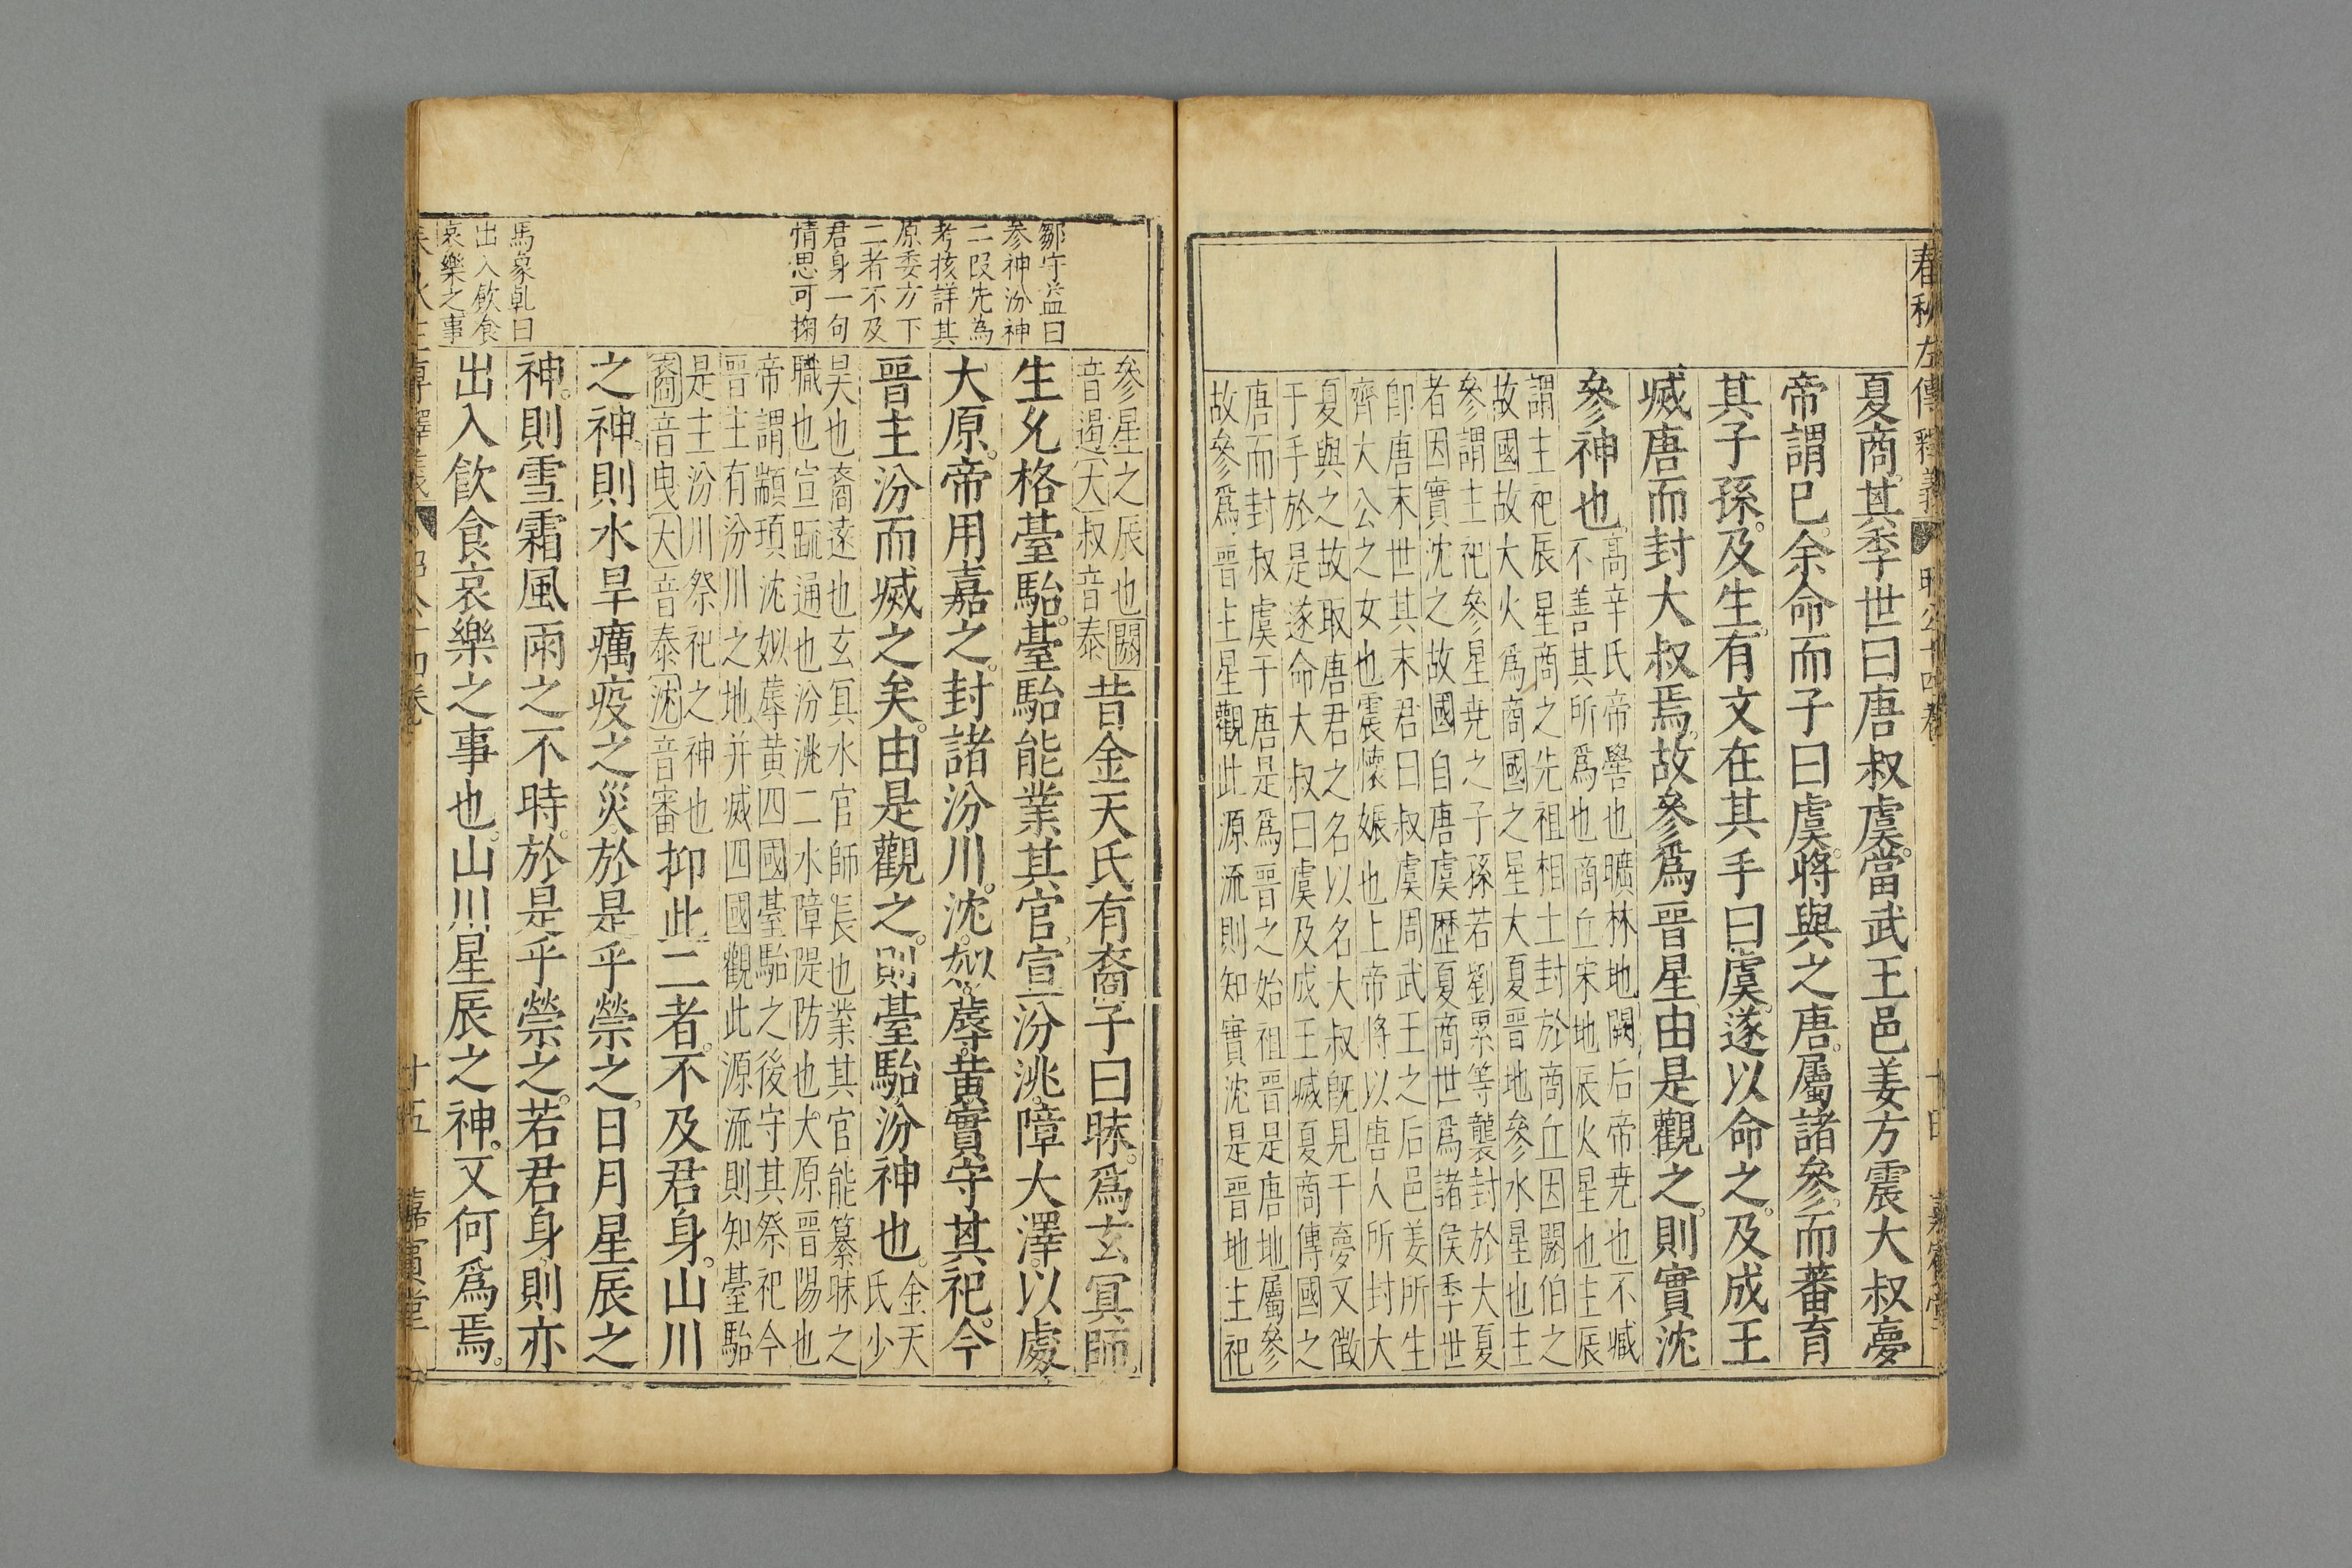 春秋左傳釋義 昭公十四卷
夏商其季世曰唐叔虞。當武王邑姜方震大叔夢
帝謂已。余命而子曰虞。將與之唐。屬諸參。而蕃育
其子孫。及生。有文在其手曰虞。遂以命之。及成王
滅唐而封大叔焉。故參爲晉星。由是觀之。則實沈
參神也
高辛氏帝嚳也曠林地闕后帝尭也不臧
不善其所爲也商丘宋地辰火星也主辰
謂主祀辰星商之先祖相土封於商丘因閼伯之
故國故大火爲商國之星大夏晉地參水星也主
參謂主祀參星尭之子孫若劉累等襲封於大夏
者因實沈之故國自唐虞歷夏商世爲諸侯季世
卽唐末世其末君曰叔虞周武王之后邑姜所生
齊大公之女也震懷娠也上帝將以唐人所封大
夏與之故取唐君之名以名大叔旣見于夢又徵
于手於是遂命大叔曰虞及成王滅夏商傳國之
唐而封叔虞于唐是爲晉之始祖晉是唐地屬參
故參爲晉主星觀此源流則知實沈是晉地主祀
參星之辰也閼
音遏大叔音泰
昔金天氏有裔子曰昧。爲玄冥師。
生允格臺駘。臺駘能業其官。宣汾洮。障大澤。以處
大原。帝用嘉之。封諸汾川。沈。姒。蓐。黃。實守其祀。今
晉主汾而滅之矣。由是觀之。則臺駘汾神也。
金天
氏少
昊也裔遠也玄冥水官師長也業其官能纂昧之
職也宣䟽通也汾洮二水障隄防也大原晉陽也
帝謂顓頊沈姒蓐黃四國臺駘之後守其祭祀今
晉主有汾川之地并滅四國觀此源流則知臺駘
是主汾川祭祀之神也
裔音曳大音泰沈音審
抑此二者。不及君身。山川
之神。則水旱癘疫之災。於是乎禜之。日月星辰之
神。則雪霜風雨之不時。於是乎禜之。若君身。則亦
出入飮食哀樂之事也。山川星辰之神。又何爲焉。
鄒守益曰
參神汾神
二段先為
考核詳其
原委方下
二者不及
君身一句
情思可掬
馬象乹曰
出入飲食
哀樂之事
十五 嘉賓堂